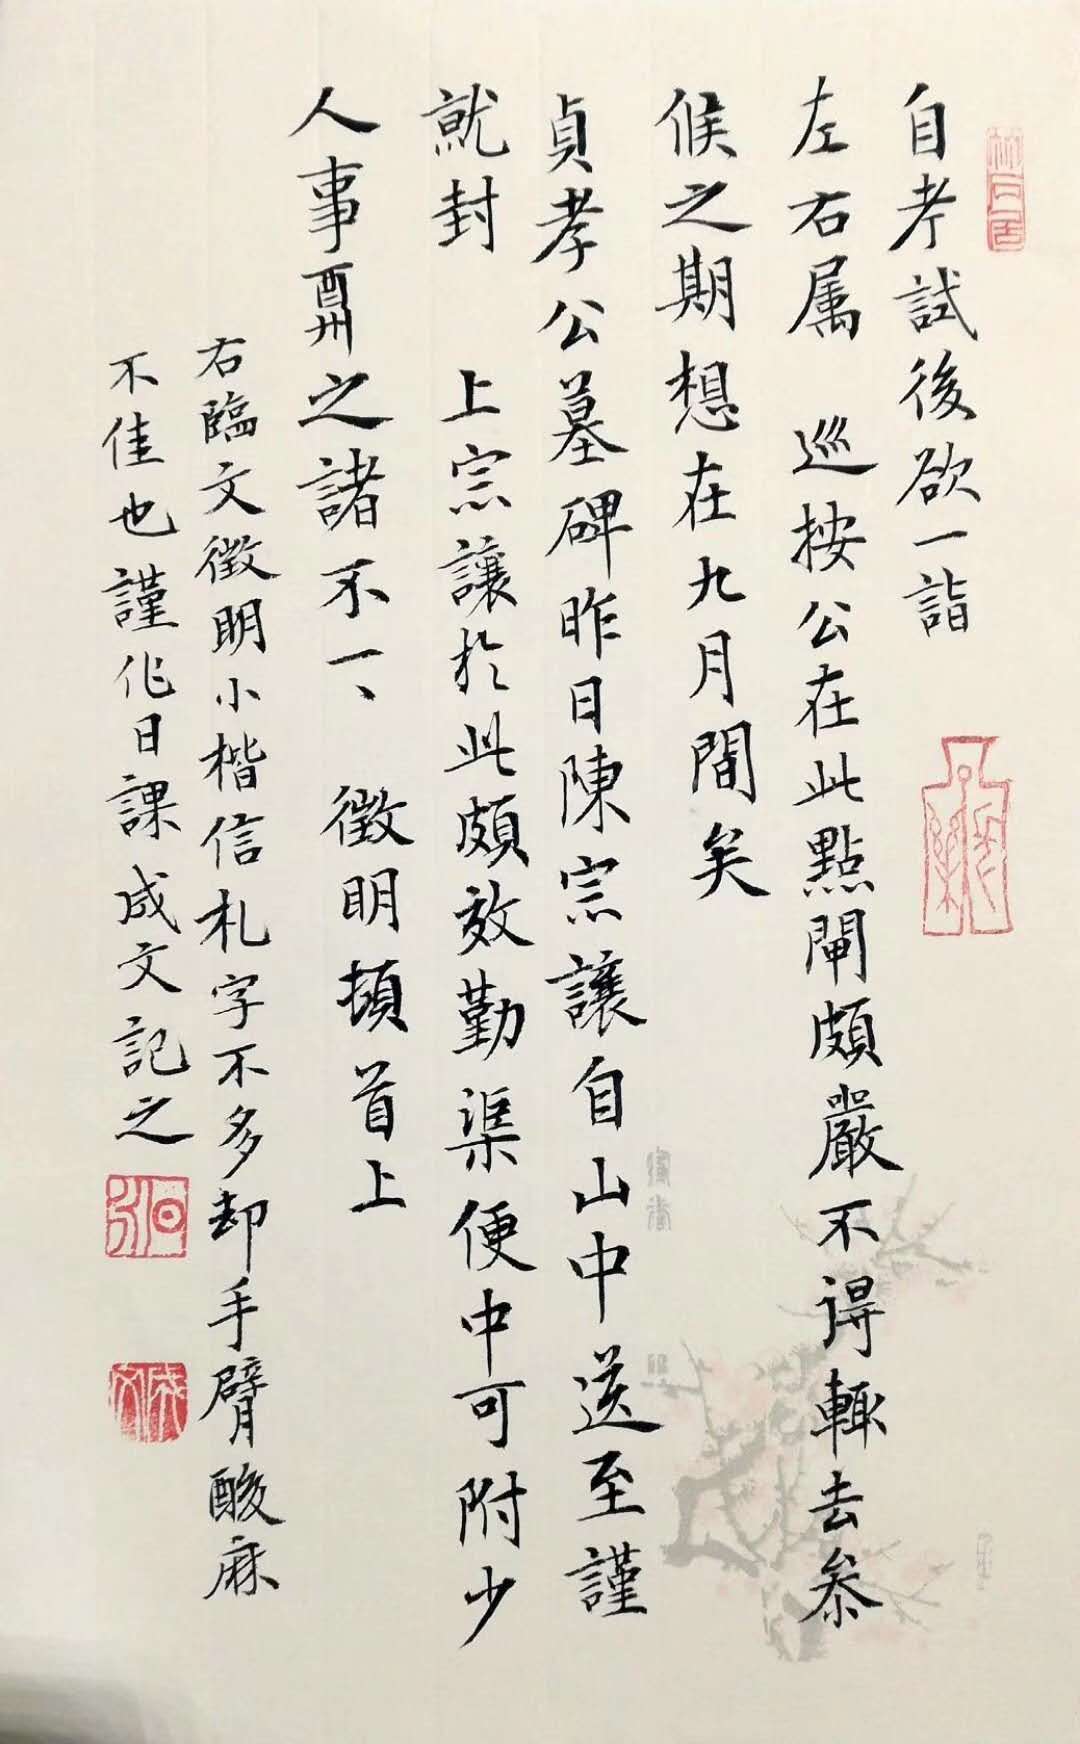 自考試後欲一詣
左右属 巡按公在此點閘頗嚴不得輙去叅
候之期想在九月間矣
貞孝公墓碑昨日陳宗讓自山中送至謹
就封 上宗讓於此頗效勤渠便中可附少
人事酬之諸不一、 徵明頓首上
右臨文徵明小楷信札字不多却手臂酸麻
不佳也謹作日課成文記之
成文